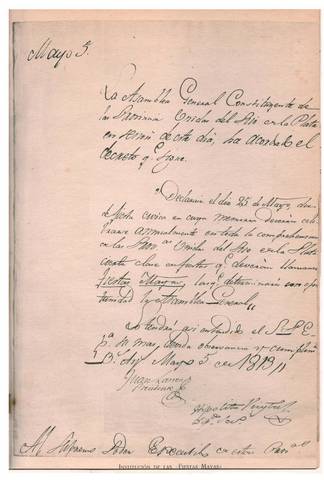 Mayo 5.
La Asamblea General Constituyente de
las Provincias Unidas del Rio de la Plata
en sesion de este dia, ha acordado el
decreto qe sigue.
Declarase el dia 25 de Mayo, dia
de fiesta civica en cuya memoria deverán cele-
brarse annualmente en toda la comprehension
de las Prov.as Unidas del Rio de la Plata
cierta clase de fiestas qe deverán llamarse
fiestas Mayas, las qe determinará con opor-
tunidad la Asamblea General,,
Lo tendrá asi entendido el S. P. E.
pa. su mas devida observancia y cumplimto
B. Ays. Mayo 5 de 1813,,
Juan Larrea
Presidente
Hipolito Vieytes
Al Supremo Poder Executivo de estas Prov.as
INSTITUCIÓN DE LAS «FIESTAS MAYAS»